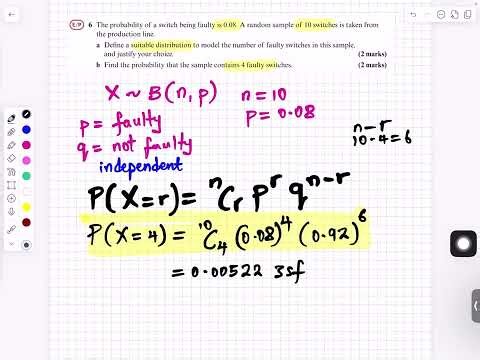 E/P 6 The probability of a switch being faulty is 0.08. A random sample of 10 switches is taken from
the production line.
a Define a suitable distribution to model the number of faulty switches in this sample,
and justify your choice. (2 marks)
b Find the probability that the sample contains 4 faulty switches. (2 marks)
X ~ B(n, p) n = 10
p = 0.08
p = faulty
q = not faulty
independent
n-r
10-4=6
P(X=r) = ⁿCᵣ pʳ qⁿ⁻ʳ
P(X=4) = ¹⁰C₄ (0.08)⁴ (0.92)⁶
= 0.00522 3sf